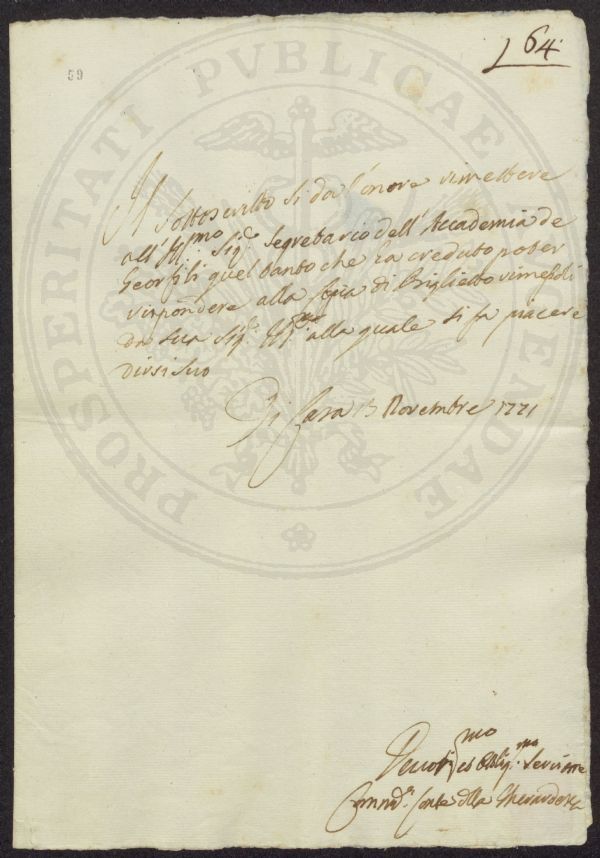 64
59
PROSPERITATI PVBLICAE AVGENDAE
Il Sottoscritto si da l'onore rimettere
all'Ill.mo Sig.e Segretario dell'Accademia de
Georfili quel tanto che ha creduto poter
rispondere alla copia di Biglietto rimessoli
da sua Sig.a Ill.ma alla quale si fa piacere
dirsi suo
Di Casa 13 Novembre 1771
Devot.mo ed Obblig.mo Servitore
Conte della Gherardesca